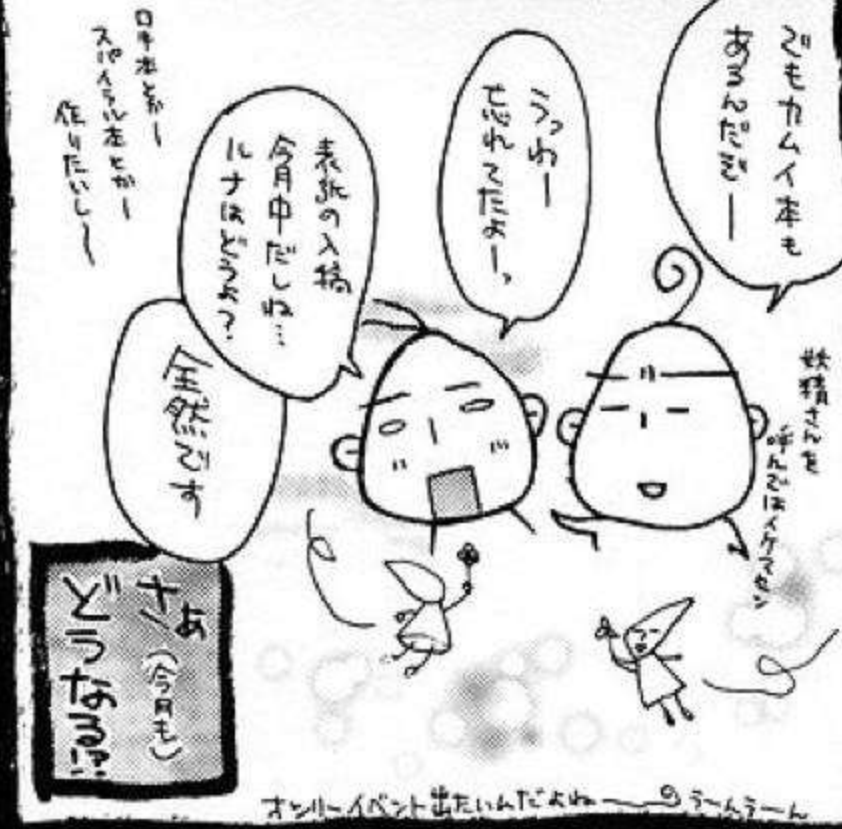 でもカムイ本も
あるんだぞー
うっわー
忘れてたよーっ
表紙の入稿
今月中だしね…
ルナはどうよ?
全然です
ロキ本とかー
スパイラル本とかー
作りたいしー
妖精さんを
呼んではイケマセン
さぁ
(今月も)
どうなる!?
オンリーイベント出たいんだよねー うーんうーん